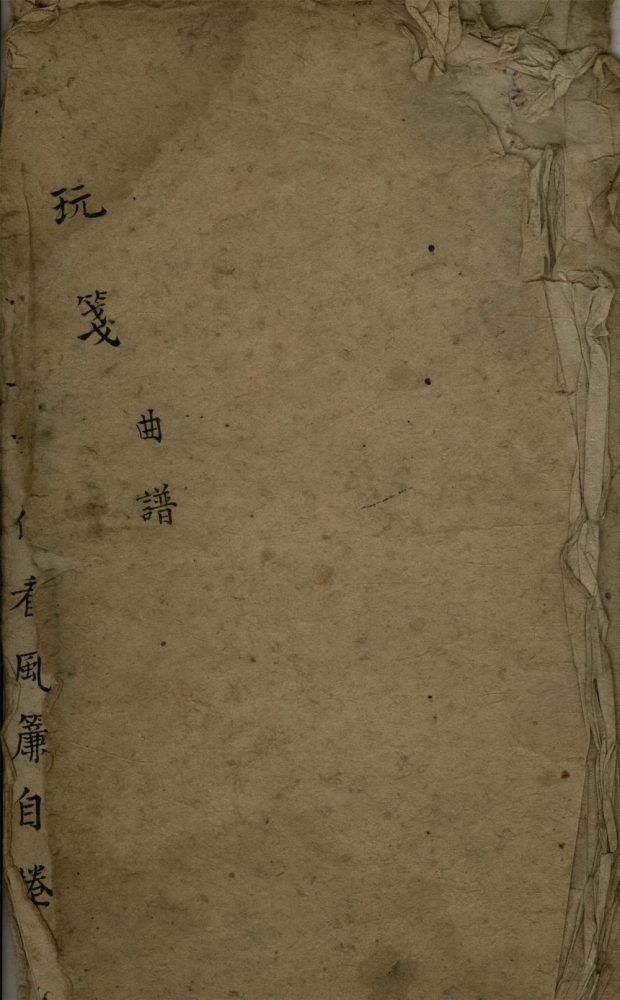 玩箋
曲譜
看風簾自捲